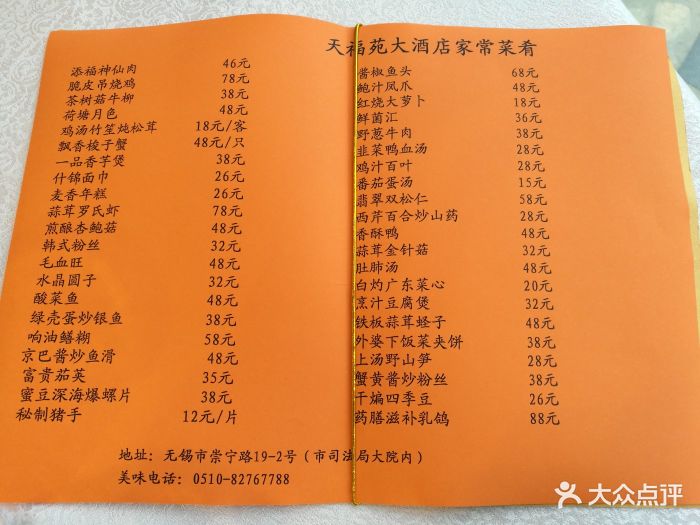 天福苑大酒店家常菜肴
添福神仙肉 46元
脆皮吊烧鸡 78元
茶树菇牛柳 38元
荷塘月色 48元
鸡汤竹笙炖松茸 18元/客
飘香梭子蟹 48元/只
一品香芋煲 38元
什锦面巾 26元
麦香年糕 26元
蒜茸罗氏虾 78元
煎酿杏鲍菇 48元
韩式粉丝 32元
毛血旺 48元
水晶圆子 32元
酸菜鱼 48元
绿壳蛋炒银鱼 38元
响油鳝糊 58元
京巴酱炒鱼滑 48元
富贵茄英 35元
蜜豆深海爆螺片 38元
秘制猪手 12元/片
酱椒鱼头 68元
鲍汁凤爪 48元
红烧大萝卜 18元
鲜菌汇 36元
野葱牛肉 38元
韭菜鸭血汤 28元
鸡汁百叶 28元
番茄蛋汤 15元
翡翠双松仁 58元
西芹百合炒山药 28元
香酥鸭 48元
蒜茸金针菇 32元
肚肺汤 48元
白灼广东菜心 20元
烹汁豆腐煲 32元
铁板蒜茸蛏子 48元
外婆下饭菜夹饼 38元
上汤野山笋 28元
蟹黄酱炒粉丝 38元
干煸四季豆 26元
药膳滋补乳鸽 88元
地址：无锡市崇宁路19-2号（市司法局大院内）
美味电话：0510-82767788
大众点评